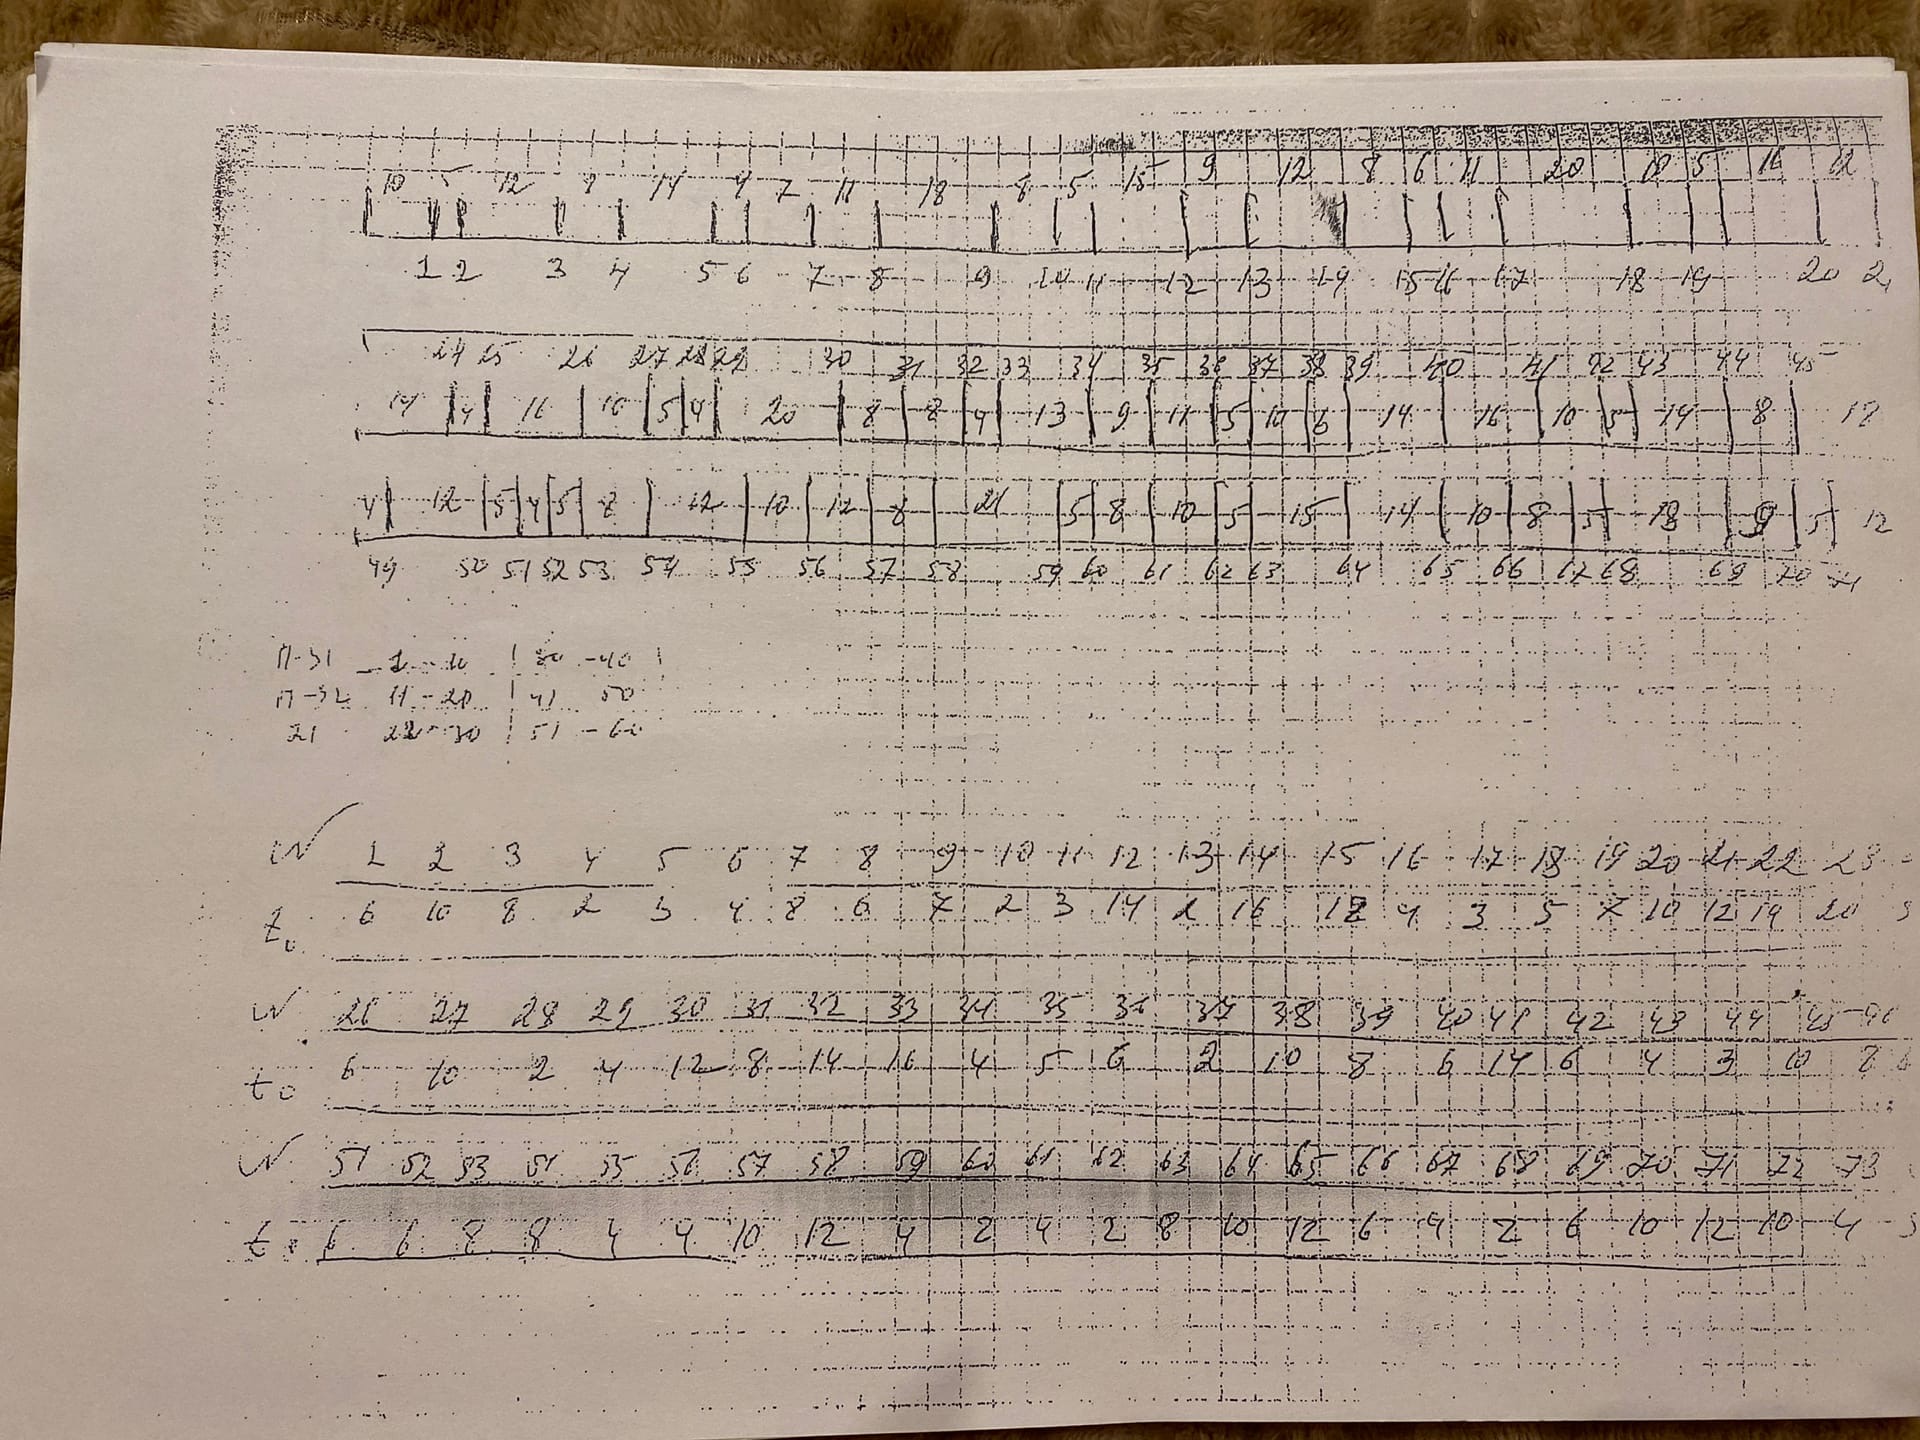 10 5 12 14 4 7 11 18 8 5 15 9 12 8 6 11 20 10 5 16
1 2 3 4 5 6 7 8 9 10 11 12 13 14 15 16 17 18 19 20
24 25 26 27 28 29 30 31 32 33 34 35 36 37 38 39 40 41 42 43 44 45
14 4 16 10 5 4 20 8 8 4 13 9 11 5 10 6 14 16 10 5 14 8 12
4 12 5 4 5 8 12 10 12 8 21 5 8 10 5 15 14 10 8 5 18 9 5 12
49 50 51 52 53 54 55 56 57 58 59 60 61 62 63 64 65 66 67 68 69 70 71
П-31 1-10 | 30-40
П-32 11-20 | 41 50
21 22-30 | 51-60
N 1 2 3 4 5 6 7 8 9 10 11 12 13 14 15 16 17 18 19 20 21 22 23
t₀ 6 10 8 2 3 4 8 6 7 2 3 14 2 16 12 4 3 5 7 10 12 14 20
N 26 27 28 29 30 31 32 33 34 35 36 37 38 39 40 41 42 43 44 45 46
t₀ 6 10 2 4 12 8 14 16 4 5 6 2 10 8 6 14 6 4 3 10 8
N 51 52 53 54 55 56 57 58 59 60 61 62 63 64 65 66 67 68 69 70 71 72 73
t₀ 6 6 8 8 4 4 10 12 4 2 4 2 8 10 12 6 4 2 6 10 12 10 4